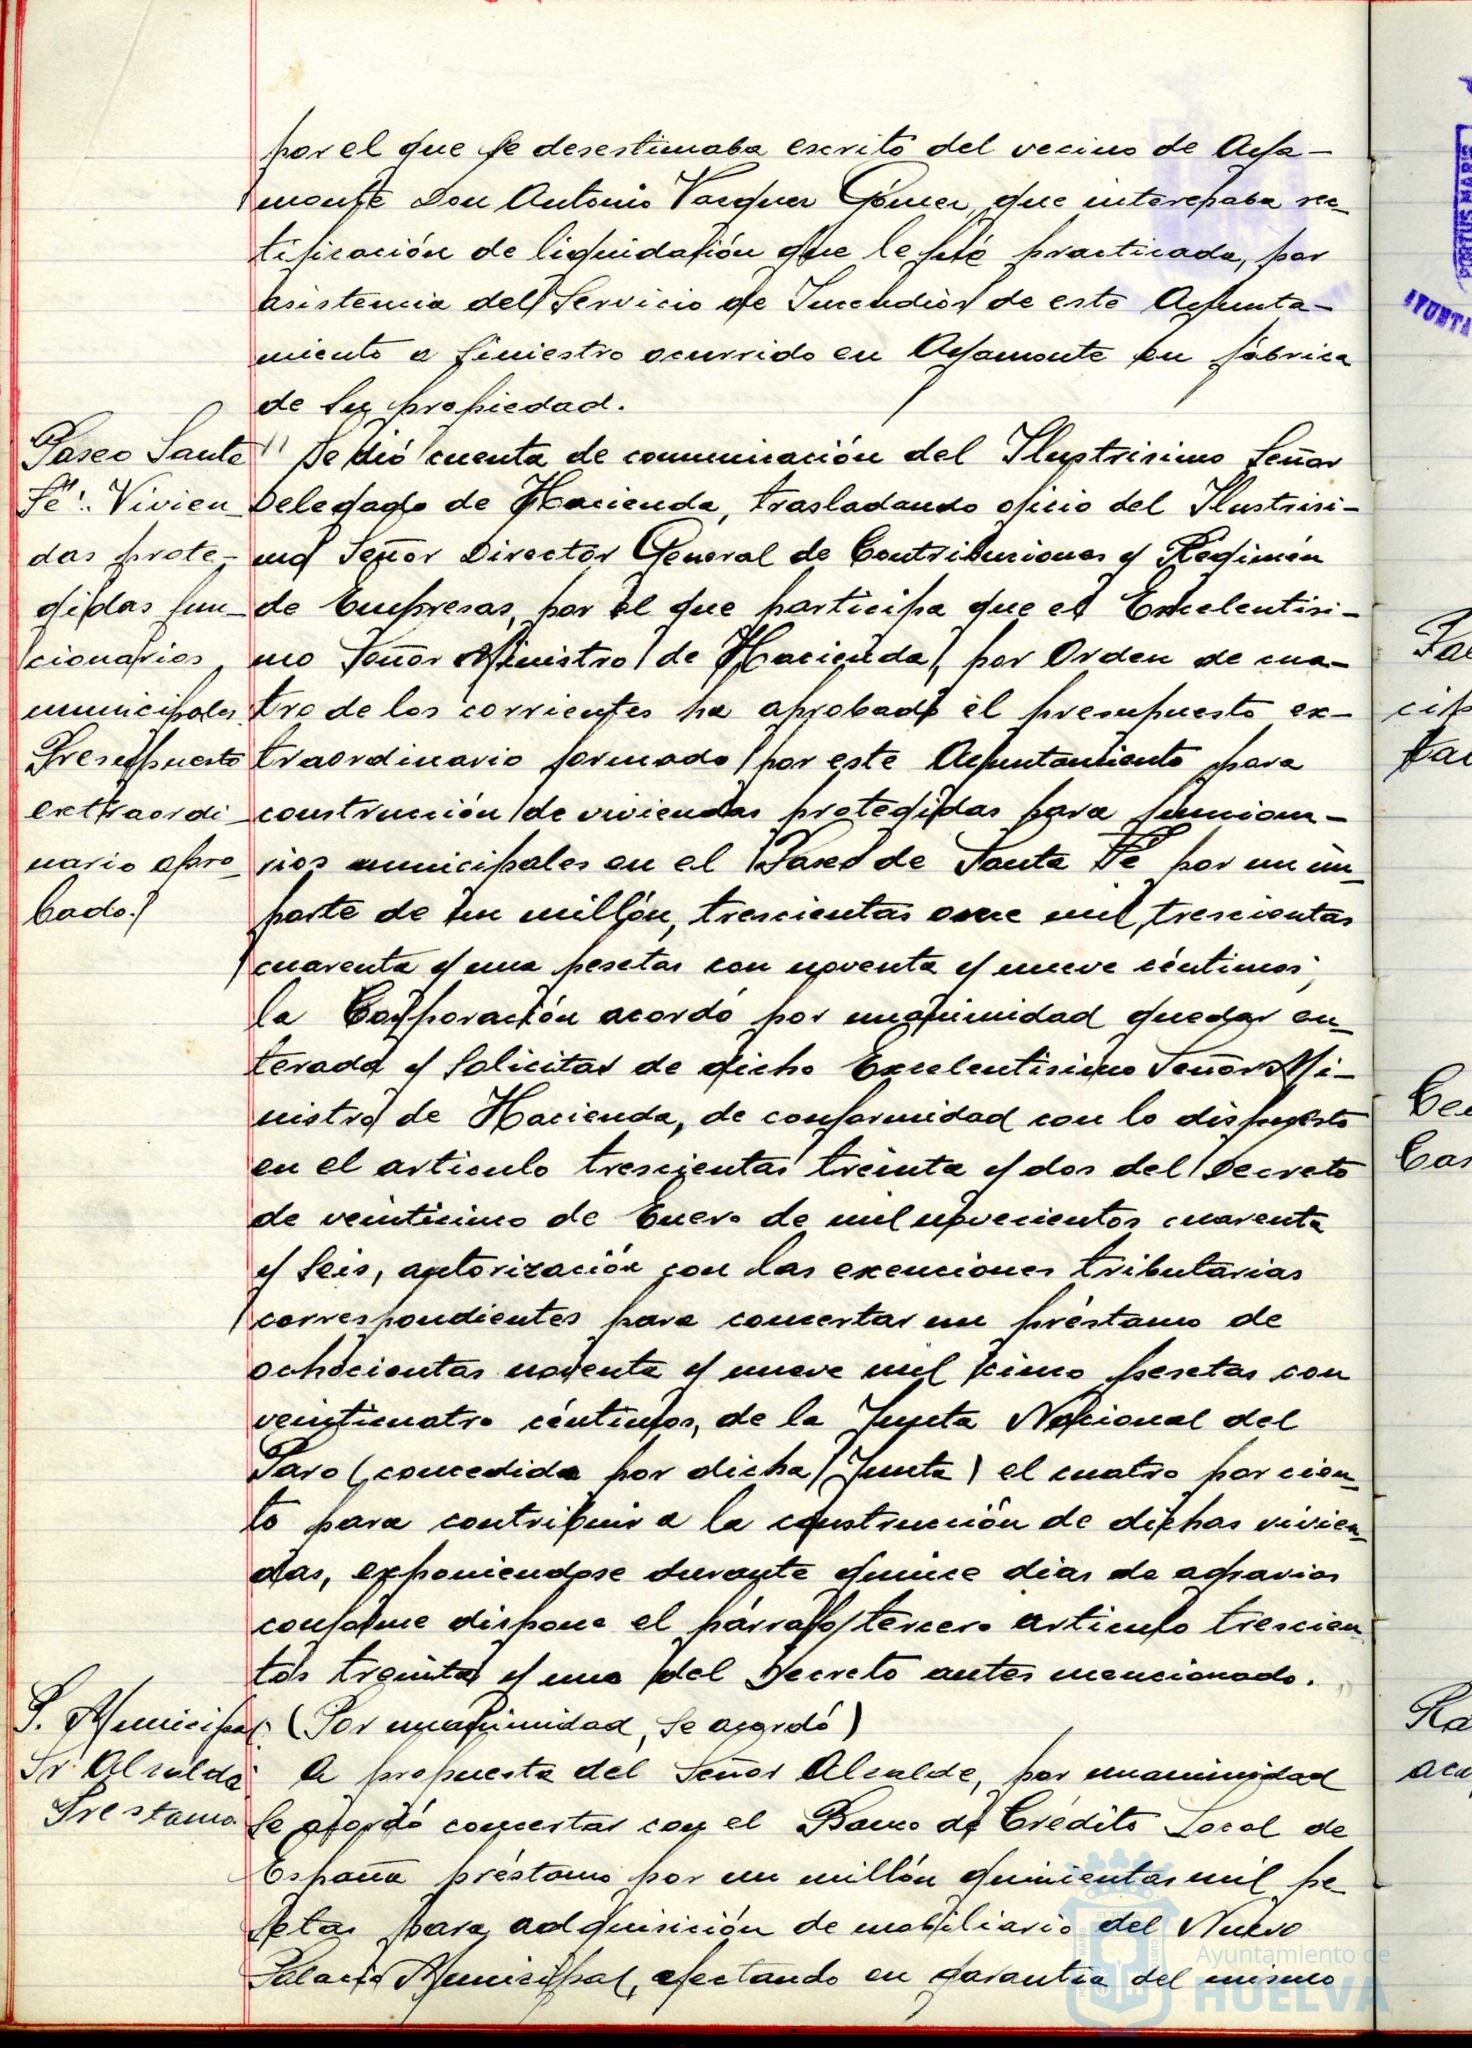 por el que se desestimaba escrito del vecino de Aya-
monte Don Antonio Vazquez Gómez, que interesaba rec-
tificación de liquidación que le fué practicada, por
asistencia del Servicio de Incendios de este Ayunta-
miento a siniestro ocurrido en Ayamonte en fábrica
de su propiedad.
Paseo Santa
Fé: Vivien-
das prote-
gidas fun-
cionarios
municipales.
Presupuesto
extraordi-
nario apro-
bado.
Se dió cuenta de comunicación del Ilustrisimo Señor
Delegado de Hacienda, trasladando oficio del Ilustrisi-
mo Señor Director General de Contribuciones y Regimén
de Empresas, por el que participa que el Excelentisi-
mo Señor Ministro de Hacienda, por Orden de cua-
tro de los corrientes ha aprobado el presupuesto ex-
traordinario formado por este Ayuntamiento para
construcción de viviendas protegidas para funciona-
rios municipales en el Paseo de Santa Fé por un im-
porte de un millón, trescientas once mil, trescientas
cuarenta y una pesetas con noventa y nueve céntimos;
la Corporación acordó por unanimidad quedar en-
terada y solicitar de dicho Excelentisimo Señor Mi-
nistro de Hacienda, de conformidad con lo dispuesto
en el articulo trescientas treinta y dos del Decreto
de veinticinco de Enero de mil novecientos cuarenta
y seis, autorización con las exenciones tributarias
correspondientes para concertar un préstamo de
ochocientas noventa y nueve mil cinco pesetas con
veinticuatro céntimos, de la Junta Nacional del
Paro (concedida por dicha Junta) el cuatro por cien-
to para contribuir a la construcción de dichas vivien-
das, exponiendose durante quince dias de agravios
conforme dispone el párrafo tercero articulo trescien-
tos treinta y uno del Decreto antes mencionado.
(Por unanimidad, se acordó)
P. Municipal.
Sr Alcalde
Prestamo.
A propuesta del Señor Alcalde, por unanimidad
se acordó concertar con el Banco de Crédito Local de
España préstamo por un millón quinientas mil pe-
setas para adquisición de mobiliario del Nuevo
Palacio Municipal, afectando en garantia del mismo
Ayuntamiento de
HUELVA
PORTUS MARIS
AYUNTA